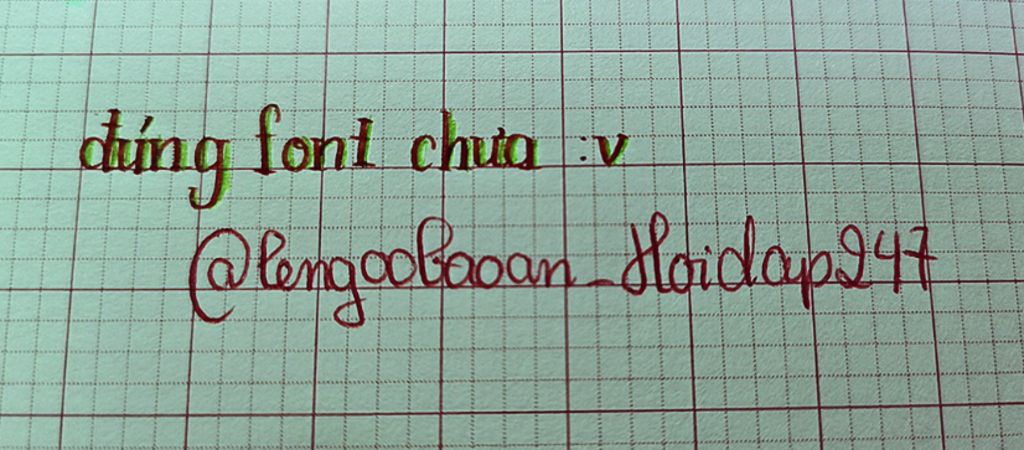 đúng font chưa :v
@lengoobaoan_Hoidap247